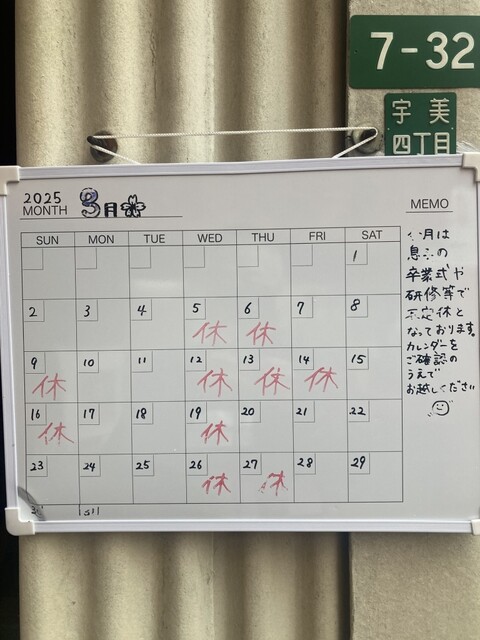 7-32
宇美
四丁目
2025
MONTH 3月
MEMO
SUN MON TUE WED THU FRI SAT
1
2 3 4 5 6 7 8
休 休
9 10 11 12 13 14 15
休 休 休 休
16 17 18 19 20 21 22
休 休
23 24 25 26 27 28 29
休 休
月は
息子の
卒業式や
研修等で
不定休と
なっております。
カレンダーを
ご確認の
うえで
お越しください